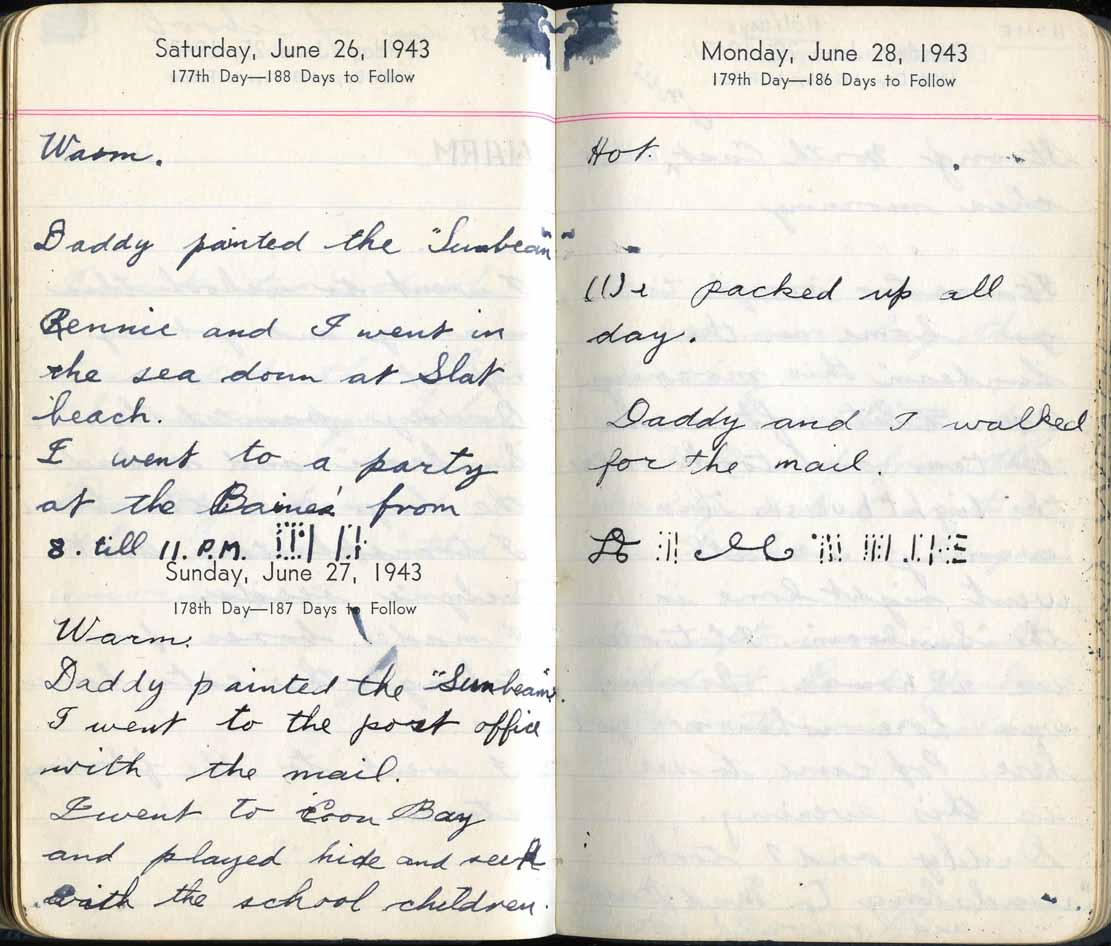 Saturday, June 26, 1943
177th Day—188 Days to Follow
Warm.
Daddy painted the "Sunbeam"
Rennie and I went in
the sea down at Slat
beach.
I went to a party
at the Baines' from
8. till 11. P.M.
Sunday, June 27, 1943
178th Day—187 Days to Follow
Warm.
Daddy painted the "Sunbeam".
I went to the post office
with the mail.
I went to Coon Bay
and played hide and seek
with the school children.
Monday, June 28, 1943
179th Day—186 Days to Follow
Hot.
We packed up all
day.
Daddy and I walked
for the mail